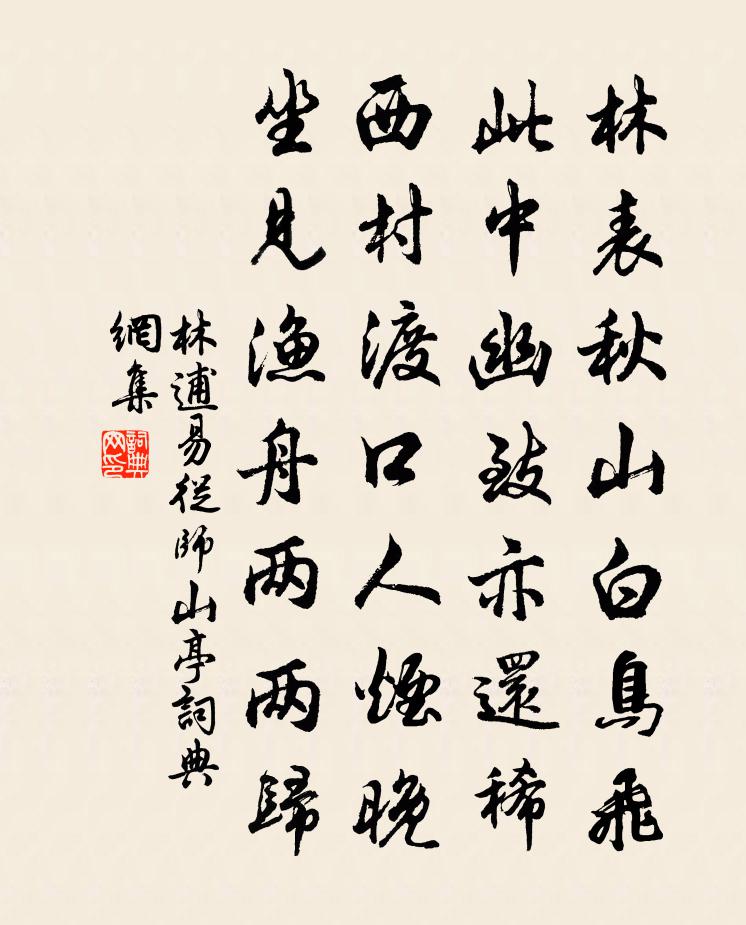 林表秋山白鳥飛
此中幽致亦還稀
西村渡口人煙晚
坐見漁舟两两歸
林逋易從師山亭詞典
網集
詞典
网印